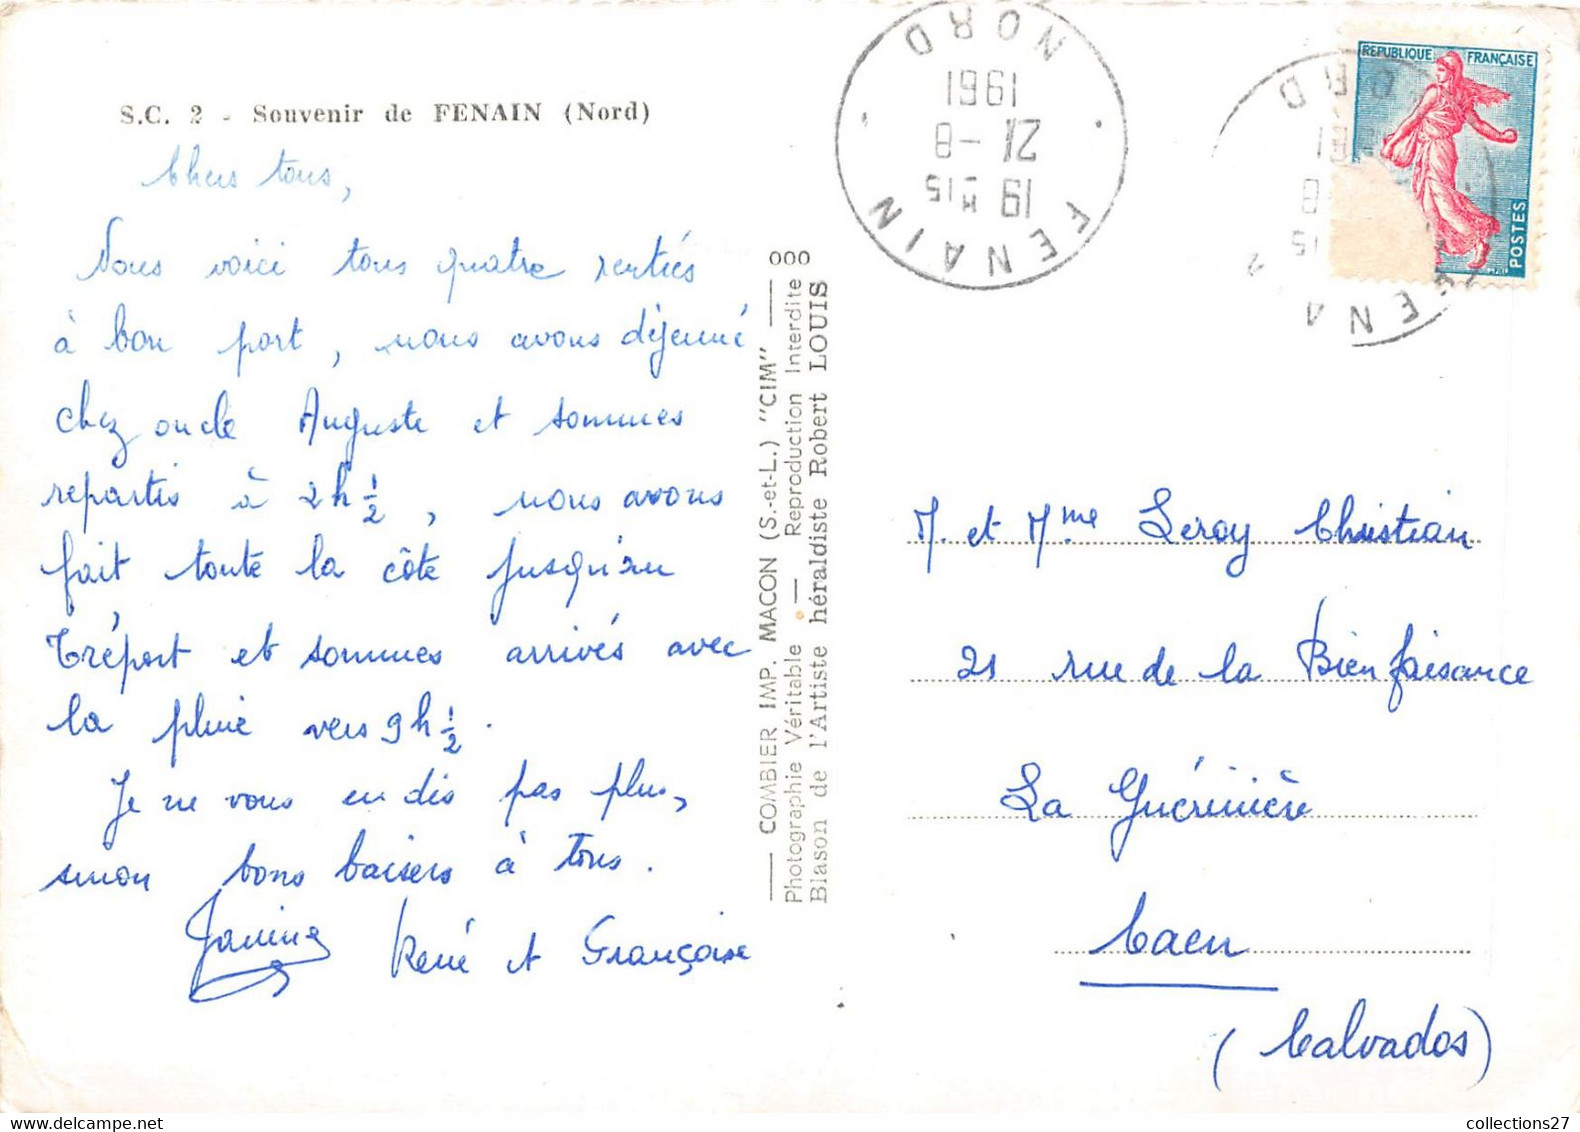 S.C. 2 - Souvenir de FENAIN (Nord)
Chers tous,
Nous voici tous quatre rentrés
à bon port, nous avons déjeuné
chez oncle Auguste et sommes
repartis à 2h ½, nous avons
fait toute la côte jusqu'au
Tréport et sommes arrivés avec
la pluie vers 9h ½.
Je ne vous en dis pas plus,
sinon bons baisers à tous.
Janine René et Françoise
COMBIER IMP. MACON (S.-et-L.) "CIM" 000
Photographie Véritable — Reproduction Interdite
Blason de l'Artiste héraldiste Robert LOUIS
FENAIN
19 H 15
21 - 8
1961
NORD
REPUBLIQUE FRANÇAISE
POSTES
M. et Mme Leroy Christian
21 rue de la Bienfaisance
La Guérinière
Caen
(Calvados)
collections27